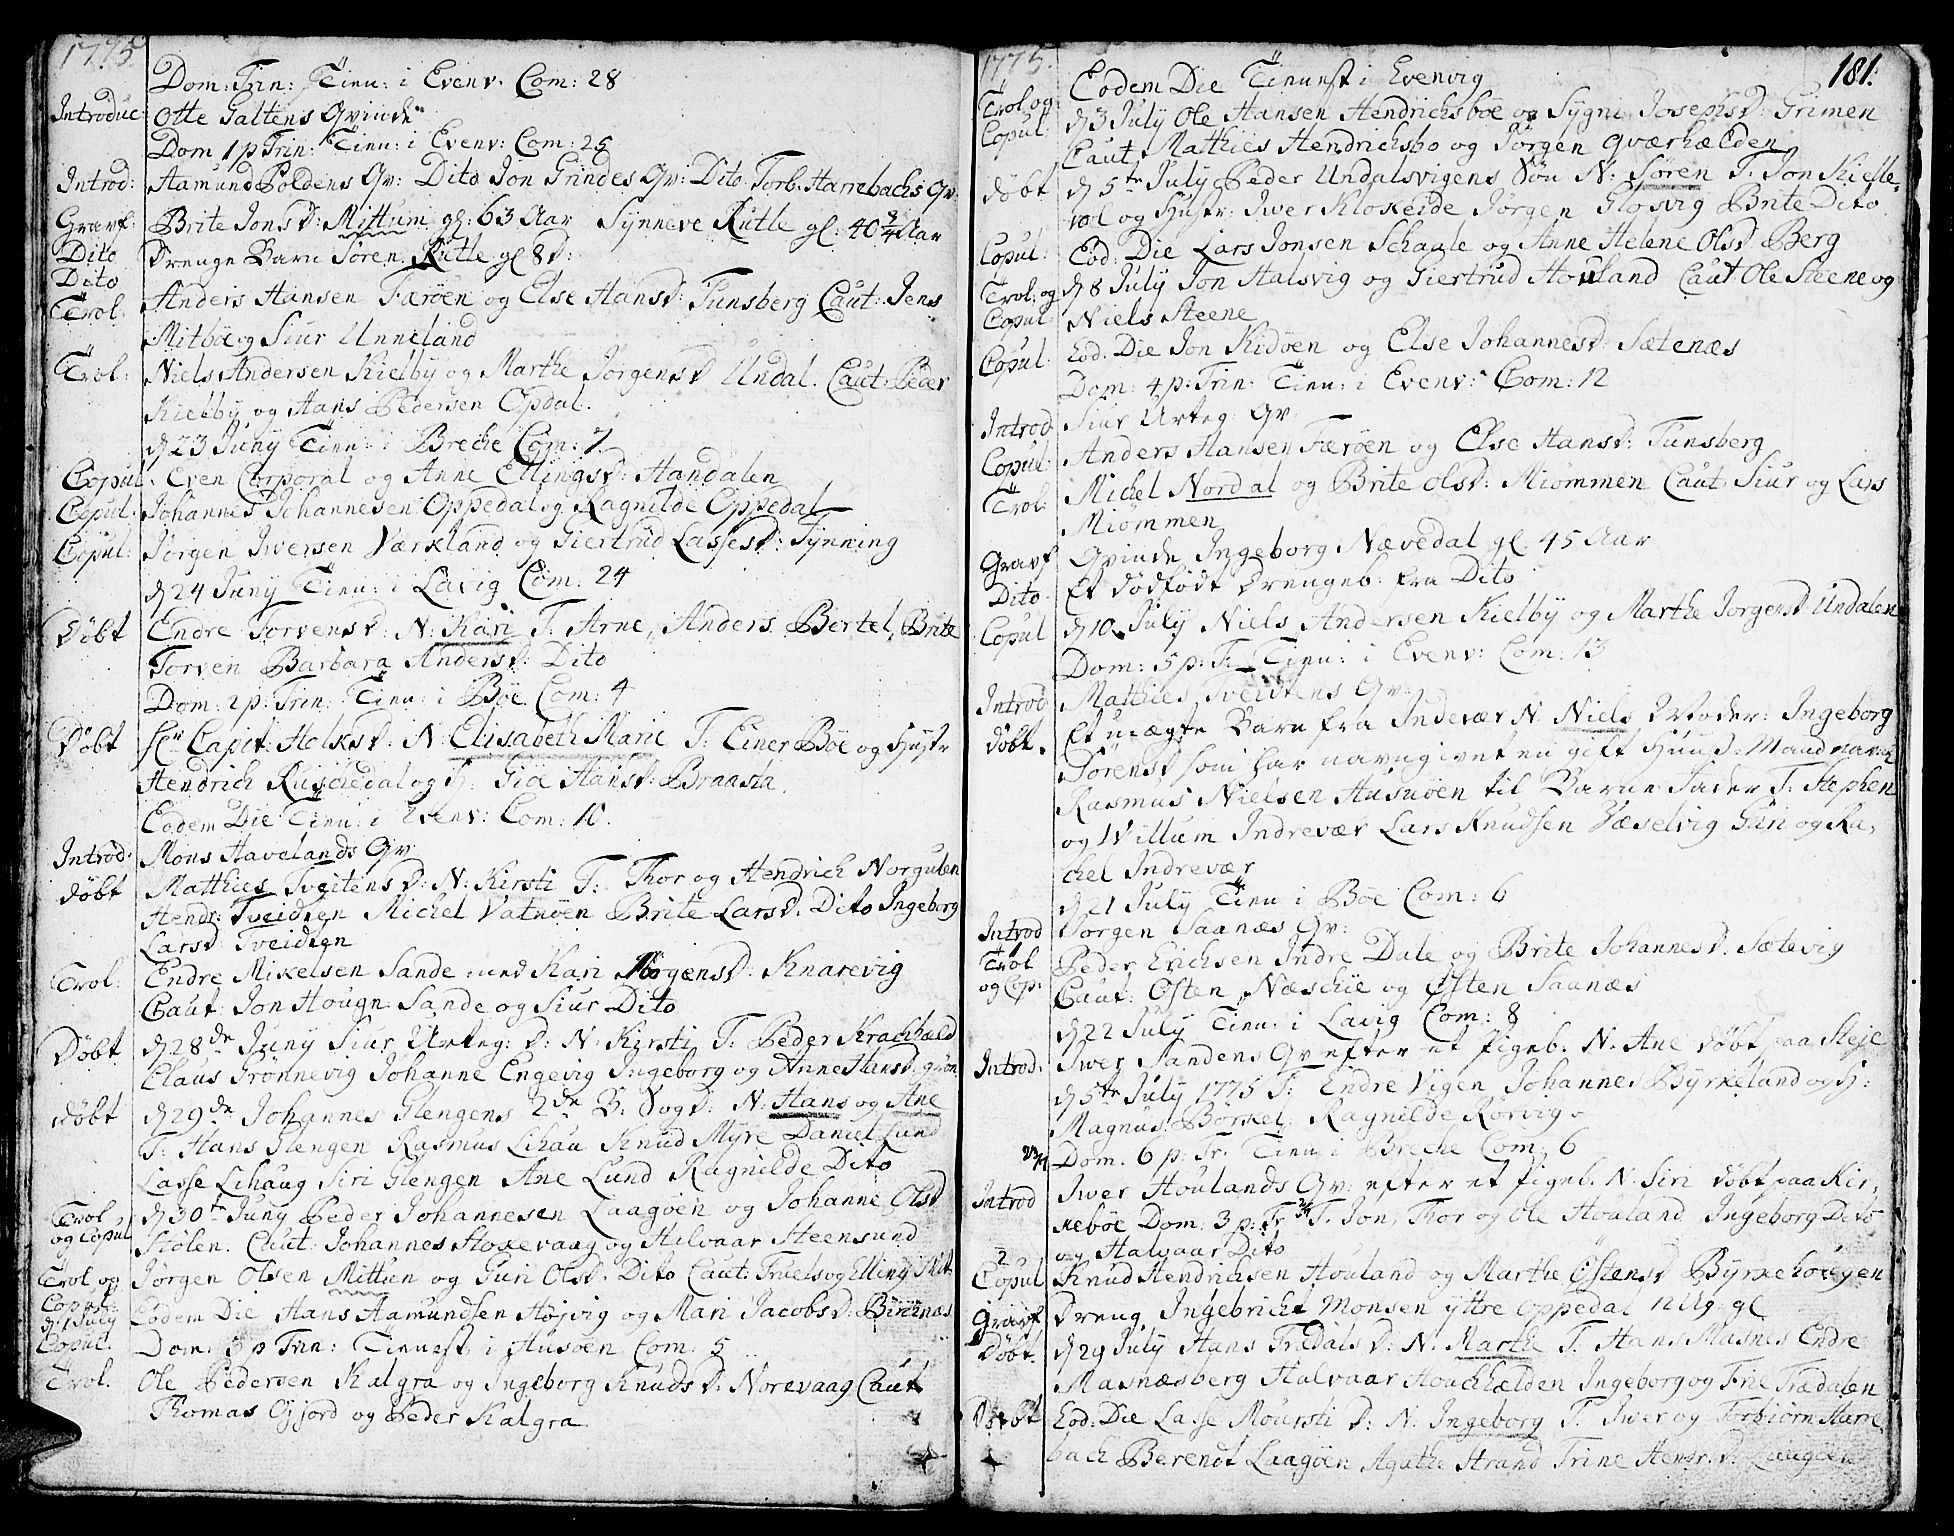 1775
Dom: Trin: Tien: i Evenv: Com: 28
Introduc: Otte Galtens Qvinde
Dom 1 p Trin: Tien: i Evenv: Com: 25
Introd: Aamund Poldens Qv: Dito Jon Grindes Qv: Dito Torb. Harrebachs Qv:
Græf: Brite Jonsd: Mittum gl: 63 Aar Synneve Rutle gl: 40 3/4 Aar
Dito Drenge Barn Søren Rutle gl 8 d:
Dito
Trol. Anders Hansen Færøen og Else Hansd: Tunsberg Caut: Jens
Mitbøe og Siur Unneland
Trol: Niels Andersen Kielby og Marthe Jørgensd Undal. Caut: Peder
Kielby og Hans Pedersen Opdal.
d 23 Juny Tien: i Breche Com: 7
Copul. Even Corporal og Anne Ellingsd: Handalen
Copul. Johannes Johannesen Oppedal og Ragnilde Oppedal
Copul: Jørgen Iversen Værkland og Giertrud Lassesd: Tynning
d 24 Juny Tien: i Lavig Com: 24
Døbt Endre Torvensd: N: Kari T. Arne, Anders Bertel, Brite
Torven Barbara Andersd: Dito
Dom: 2 p: Trin: Tien: i Bøe Com: 4
Døbt Hr Capit: Holksd: N: Elisabeth Marie T: Einer Bøe og Hustr
Hendrich Ruschedal og H: Gioe Hansd: Bransta.
Eodem Die Tien: i Evenv: Com: 10.
Introd. Mons Havelands Qv
døbt Matthies Tveitens d: N: Kirsti T: Thor og Hendrich Norgulen
Hendr: Tveidten Michel Vatnøen Brite Larsd. Dito Ingeborg
Larsd Tveidten
Trol: Endre Mikelsen Sande med Kari Mogensd: Knarevig
Caut: Jon Hougn: Sande og Siur Dito
Døbt d 28de Juny Siur Urteg: d: N: Kirsti T. Peder Krachhæld
Claus Grønnevig Johanne Engevig Ingeborg og Anne Hansd: grøn
døbt d 29de Johannes Glengens 2de B: S og d: N: Hans og Ane
T. Hans Glengen Rasmus Lihau Knud Myre Daniel Lund
Lasse Lihaug Siri Glengen Ane Lund Ragnilde Dito
Trol og Copul d 30te Juny Peder Johannesen Laagøen og Johanne Olsd
Stølen. Caut: Johannes Hoxevaag og Halvaar Steensund
Trol og Copul: Jørgen Olsen Mittun og Guri Olsd. Dito Caut: Truels og Elling Mit
d 1 July Copul. Eodem Die Hans Aamundsen Højvig og Mari Jacobsd: Birknæs
Dom: 3 p Trin: Tienest i Husøen Com: 5
Trol. Ole Pedersen Kalgra og Ingeborg Knudsd: Norevaag Caut
Thomas Gjord og Peder Kalgra
1775.
181.
Eodem Die Tienest i Evenvig
Trol. og Copul d 3 July Ole Hansen Hendrichsbøe og Sygni Josephsd: Grimen
Caut. Mathies Hendrichsbo og Jørgen Qværhælden
døbt d 5te July Peder Undalsvigens Søn N: Søren T. Jon Kielle,
vol og Hustr: Iwer Kloxeide Jørgen Glosvig Brite Dito
Copul: Eod: Die Lars Jonsen Schagle og Anne Helene Olsd Berg
Trol, og Copul: d 8 July Jon Halsvig og Giertrud Houland Caut Ole Steene og
Niels Steene
Copul Eod. Die Jon Kidøen og Else Johannesd: Sætenæs
Dom: 4 p: Trin: Tien: i Evenv: Com: 12
Introd Siur Urteg: Qv:
Copul: Anders Hansen Færøen og Else Hansd: Tunsberg
Trol: Michel Nordal og Brite Olsd: Miømmen Caut: Siur og Lars
Miømmen
Gravf Qvinde Ingeborg Nævedal gl. 45 Aar
Dito Et dødfødt Drengeb: fra Dito
Copul d 10. July Niels Andersen Kielby og Marthe Jørgensd Undalen
Dom: 5 p: T: Tien: i Evenv: Com: 13
Introd Mathies Tveidtens Qv:
døbt. Et uægte Barn fra Indevær N. Niels Moder: Ingeborg
Sørensd som har navngivet en gift Husd: Mand navnl
Rasmus Nielsen Husøen til Barne Fader T. Stephen
og Willum Indrevær Lars Knudsen Væselvig Guri og Ra,
chel Indrevær
d 21 July Tien i Bøe Com: 6
Introd Jørgen Saanæs Qv:
Trol og Cop: Peder Erichsen Indre Dale og Brite Johannesd. Sætevig
Caut: Østen Næschie og Østen Saanæs
d 22 July Tien: i Lavig Com: 8
Introd. Iwer Sandens Qv efter et Pigeb. N. Ane døbt paa Steje
d 5te July 1775 T: Endre Vigen Johannes Byrkeland og H:
Magnus Borkel: Ragnilde Rørvig
23/7 Dom. 6 p: Tr: Tien i Breche Com: 6
Introd Iwer Houlands Qv: efter et Pigeb. N. Siri døbt paa Kir,
kebøe Dom: 3 p: Tr T. Jon, Thor og Ole Houland Ingeborg Dito
og Halvaar Dito
2 Copul Knud Hendrichsen Houland og Marthe Østensd Byrkehougen
Gravf Dreng Ingebricht Monsen yttre Oppedal 12 Ug: gl
Døbt d 29 July Hans Trædals d: N. Marthe T. Hans Masnes Endre
Masnæsberg Halvaar Houchhælden Ingeborg og Trie Trædalen
Døbt Eod: Die Lasse Moursti d: N. Ingeborg T. Iwer og Torbiørn Harre
bach Berendt Laagøen Agathe Strand Trine Hendr: d: Laagøen